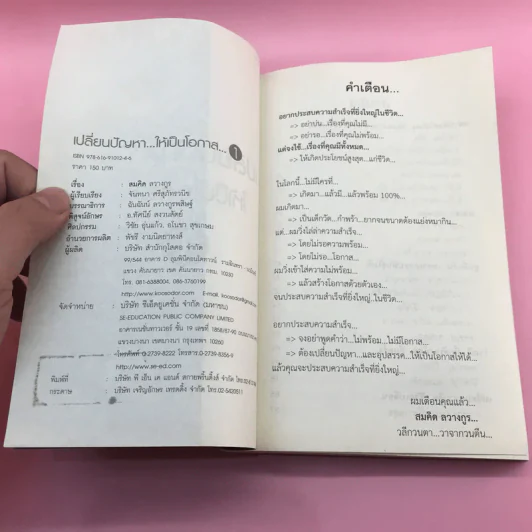 เปลี่ยนปัญหา...ให้เป็นโอกาส... 1
ISBN 978-616-91312-4-6
ราคา 150 บาท
เรื่อง : สมคิด ลวางกูร
ผู้เรียบเรียง : จันทนา ศรีสุภัทรวนิช
บรรณาธิการ : ฉันฉันน์ ลวางกูรพสิษฐ์
พิสูจน์อักษร : อ.ทัศนีย์ สงวนสัตย์
ศิลปกรรม : วิชัย อุ่นแก้ว. อโนชา สุขเกษม
อำนวยการผลิต : พัชรี งามนิตยาหงส์
ผู้ผลิต : บริษัท สำนักกูโสดอ จำกัด
99/544 อาคาร D ลุมพินีคอนโดทาวน์
แขวง คันนายาว เขต คันนายาว กรุงเทพฯ 10230
โทร. 081-6588004, 086-3760199
http://www.koosodor.com E-mail.
จัดจำหน่าย : บริษัท ซีเอ็ดยูเคชั่น จำกัด (มหาชน)
SE-EDUCATION PUBLIC COMPANY LIMITED
อาคารเนชั่นทาวเวอร์ ชั้น 19 เลขที่ 1858/87-90
แขวงบางนา เขตบางนา กรุงเทพฯ 10260
โทรศัพท์ 0-2739-8222 โทรสาร.0-2739-8356-9
http://www.se-ed.com
พิมพ์ที่ : บริษัท พี เอ็น เค แอนด์ สกายพริ้นติ้งส์ จำกัด
กระดาษ : บริษัท เจริญอักษร เทรดดิ้ง จำกัด โทร.02-5420811
คำเตือน...
อยากประสบความสำเร็จที่ยิ่งใหญ่ในชีวิต...
=> อย่าบ่น...เรื่องที่คุณไม่มี...
=> อย่ารอ...เรื่องที่คุณไม่พร้อม...
แต่จงใช้...เรื่องที่คุณมีทั้งหมด...
=> ให้เกิดประโยชน์สูงสุด...แก่ชีวิต...
ในโลกนี้...ไม่มีใครที่...
=> เกิดมา...แล้วมี...แล้วพร้อม 100%...
ผมเกิดมา...
=> เป็นเด็กวัด...กำพร้า...ยากจนขนาดต้องแย่งหมากิน...
แต่...ผมวิ่งไล่ล่าความสำเร็จ...
=> โดยไม่รอความพร้อม...
=> โดยไม่รอ...โอกาส...
ผมวิ่งเข้าใส่ความไม่พร้อม...
=> แล้วสร้างโอกาสด้วยตัวเอง...
จนประสบความสำเร็จที่ยิ่งใหญ่..ในชีวิต...
อยากประสบความสำเร็จ...
=> จงอย่าพูดคำว่า...ไม่พร้อม...ไม่มีโอกาส...
=> ต้องเปลี่ยนปัญหา...และอุปสรรค...ให้เป็นโอกาสให้ได้...
แล้วคุณจะประสบความสำเร็จที่ยิ่งใหญ่...
ผมเตือนคุณแล้ว...
สมคิด ลวางกูร...
วลีกวนตา...วาจากวนตีน...